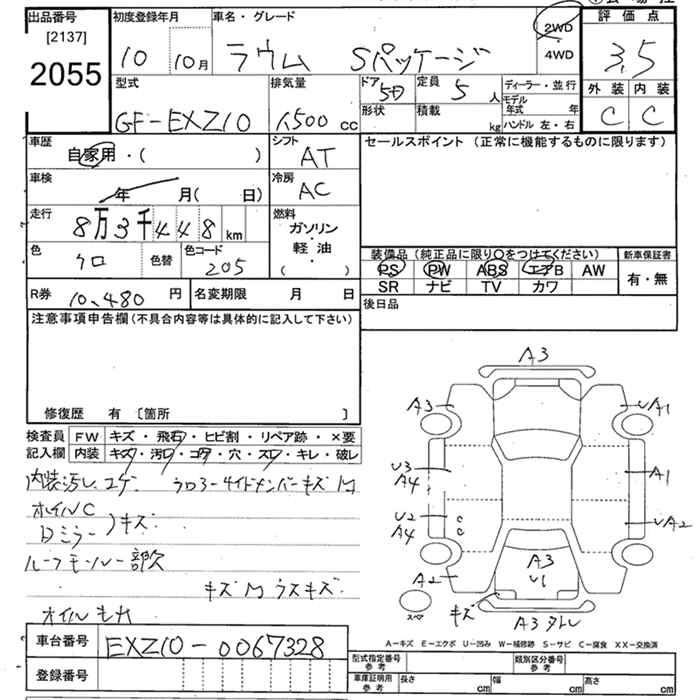 出品番号
[2137]
2055
初度登録年月
10 10月
車名・グレード
ラウム Sパッケージ
2WD
・
4WD
評価点
3.5
外装 内装
C C
型式
GF-EXZ10
排気量
1500 cc
ドア 5D
形状
定員 5 人
積載 kg
ディーラー・並行
モデル年式 年
ハンドル 左・右
車歴
自家用・( )
シフト
AT
車検
年 月( 日)
冷房
AC
走行
8万3千448 km
燃料
ガソリン
軽・油
( ・ )
色
クロ
色替
色コード
205
R券 10,480 円
名変期限 月 日
セールスポイント (正常に機能するものに限ります)
装備品 (純正品に限り○をつけてください)
PS PW ABS エアB AW
SR ナビ TV カワ
新車保証書
有・無
後日品
注意事項申告欄(不具合内容等は具体的に記入して下さい)
修復歴 有 〔箇所 〕
検査員記入欄
FW キズ・飛石・ヒビ割・リペア跡・×要
内装 キズ・汚レ・コゲ・穴・スレ・キレ・破レ
内装汚レ コゲ クロスサイドメンバーキズM
ホイルC
Dミラー)キズ
ルーフモール一部欠
キズM ウスキズ
オイルモレ
車台番号 EXZ10-0067328
登録番号
A3
A3
UA1
U3
A4
A1
U2
A4
C
C
UA2
A2
A3
U1
キズ
A3 タトレ
スペア
A-キズ E-エクボ U-凹み W-補修跡 S-サビ C-腐食 XX-交換済
型式指定番号 参考
類別区分番号 参考
車庫証明用 参考
長さ cm
幅 cm
高さ cm